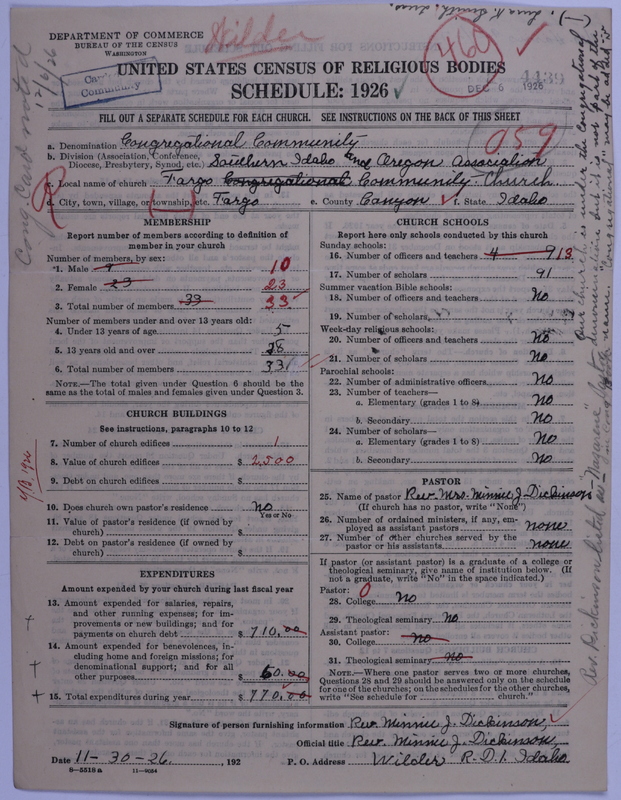 DEPARTMENT OF COMMERCE
BUREAU OF THE CENSUS
WASHINGTON
Wilder
460
4439
DEC 6 1926
Community
Cong card noted
12/6/26
UNITED STATES CENSUS OF RELIGIOUS BODIES
SCHEDULE: 1926
FILL OUT A SEPARATE SCHEDULE FOR EACH CHURCH. SEE INSTRUCTIONS ON THE BACK OF THIS SHEET
059
a. Denomination Congregational Community
b. Division (Association, Conference, Diocese, Presbytery, Synod, etc.) Southern Idaho and Oregon Association
c. Local name of church Fargo Congregational Community Church
d. City, town, village, or township, etc. Fargo e. County Canyon f. State Idaho
MEMBERSHIP
Report number of members according to definition of
member in your church
Number of members, by sex:
1. Male 10
2. Female 23 23
3. Total number of members 33 33
Number of members under and over 13 years old:
4. Under 13 years of age 5
5. 13 years old and over 28
6. Total number of members 33
NOTE.—The total given under Question 6 should be the
same as the total of males and females given under Question 3.
CHURCH BUILDINGS
See instructions, paragraphs 10 to 12
7. Number of church edifices 1
8. Value of church edifices $ 2,500
9. Debt on church edifices $
10. Does church own pastor's residence no
Yes or No
11. Value of pastor's residence (if owned by
church) $
12. Debt on pastor's residence (if owned by
church) $
EXPENDITURES
Amount expended by your church during last fiscal year
13. Amount expended for salaries, repairs,
and other running expenses; for im-
provements or new buildings; and for
payments on church debt $ 710.00
14. Amount expended for benevolences, in-
cluding home and foreign missions; for
denominational support; and for all
other purposes 60.00
15. Total expenditures during year $ 770.00
CHURCH SCHOOLS
Report here only schools conducted by this church
Sunday schools:
16. Number of officers and teachers 4 9 13
17. Number of scholars 91
Summer vacation Bible schools:
18. Number of officers and teachers No
19. Number of scholars
Week-day religious schools:
20. Number of officers and teachers No
21. Number of scholars No
Parochial schools:
22. Number of administrative officers No
23. Number of teachers—
a. Elementary (grades 1 to 8) No
b. Secondary No
24. Number of scholars—
a. Elementary (grades 1 to 8) No
b. Secondary No
PASTOR
25. Name of pastor Rev. Mrs. Minnie J. Dickinson
(If church has no pastor, write "None")
26. Number of ordained ministers, if any, em-
ployed as assistant pastors none
27. Number of other churches served by the
pastor or his assistants none
If pastor (or assistant pastor) is a graduate of a college or
theological seminary, give name of institution below. (If
not a graduate, write "No" in the space indicated.)
Pastor: 0
28. College No
29. Theological seminary No
Assistant pastor:
30. College No
31. Theological seminary No
NOTE.—Where one pastor serves two or more churches,
Questions 28 and 29 should be answered only on the schedule
for one of the churches; on the schedules for the other churches,
write "See schedule for church."
Signature of person furnishing information Rev. Minnie J. Dickinson
Official title Rev. Minnie J. Dickinson
Date 11-30-26, 192 P. O. Address Wilder R.D.1. Idaho
8—5518a 11—9054
Our church is under the Congregational
denomination but it is not part of the
name. "Congregational" may be added